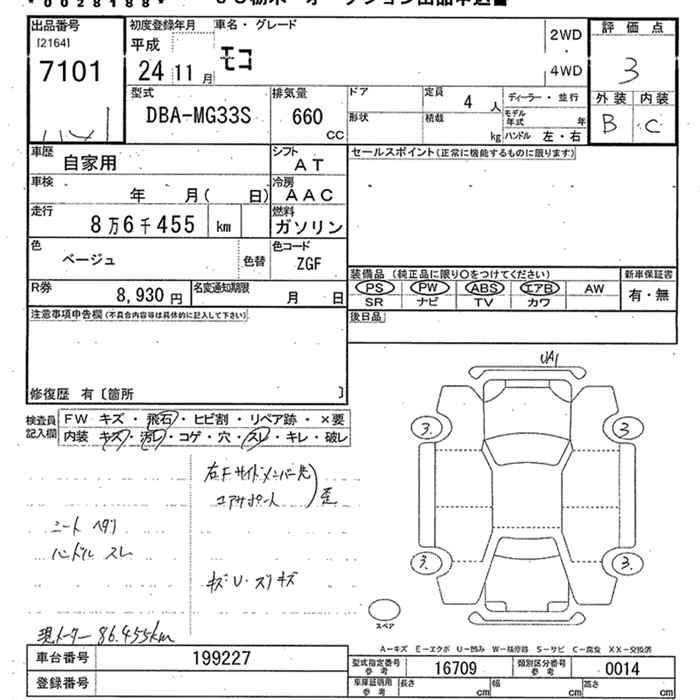 *0028188*
出品番号
[2164]
7101
初度登録年月
平成
24 11 月
車名・グレード
モコ
2WD
4WD
評価点
3
外装 内装
B C
型式
DBA-MG33S
排気量
660
CC
ドア
形状
定員
4 人
積載
kg
ディーラー・並行
モデル年式 年
ハンドル 左・右
車歴
自家用
シフト
AT
セールスポイント(正常に機能するものに限ります)
車検
年 月( 日)
冷房
AAC
走行
8万6千455 km
燃料
ガソリン
色
ベージュ
色替
色コード
ZGF
R券
8,930 円
名変通知期限
月 日
装備品 (純正品に限り○をつけてください)
PS PW ABS エアB AW
SR ナビ TV カワ
新車保証書
有・無
注意事項申告欄(不具合内容等は具体的に記入して下さい)
後日品
修復歴 有〔箇所 〕
検査員記入欄
FW キズ・飛石・ヒビ割・リペア跡・×要
内装 キズ・汚レ・コゲ・穴・スレ・キレ・破レ
右Fサイドメンバー先
エアサポート
歪
シート ヘタリ
ハンドル スレ
キズU・スリキズ
現メーター 86.455km
UA1
3.
3.
3.
3.
スペア
A-キズ E-エクボ U-凹み W-補修跡 S-サビ C-腐食 XX-交換済
車台番号
199227
登録番号
型式指定番号
参考
16709
類別区分番号
参考
0014
車庫証明用
参考
長さ cm
幅 cm
高さ cm